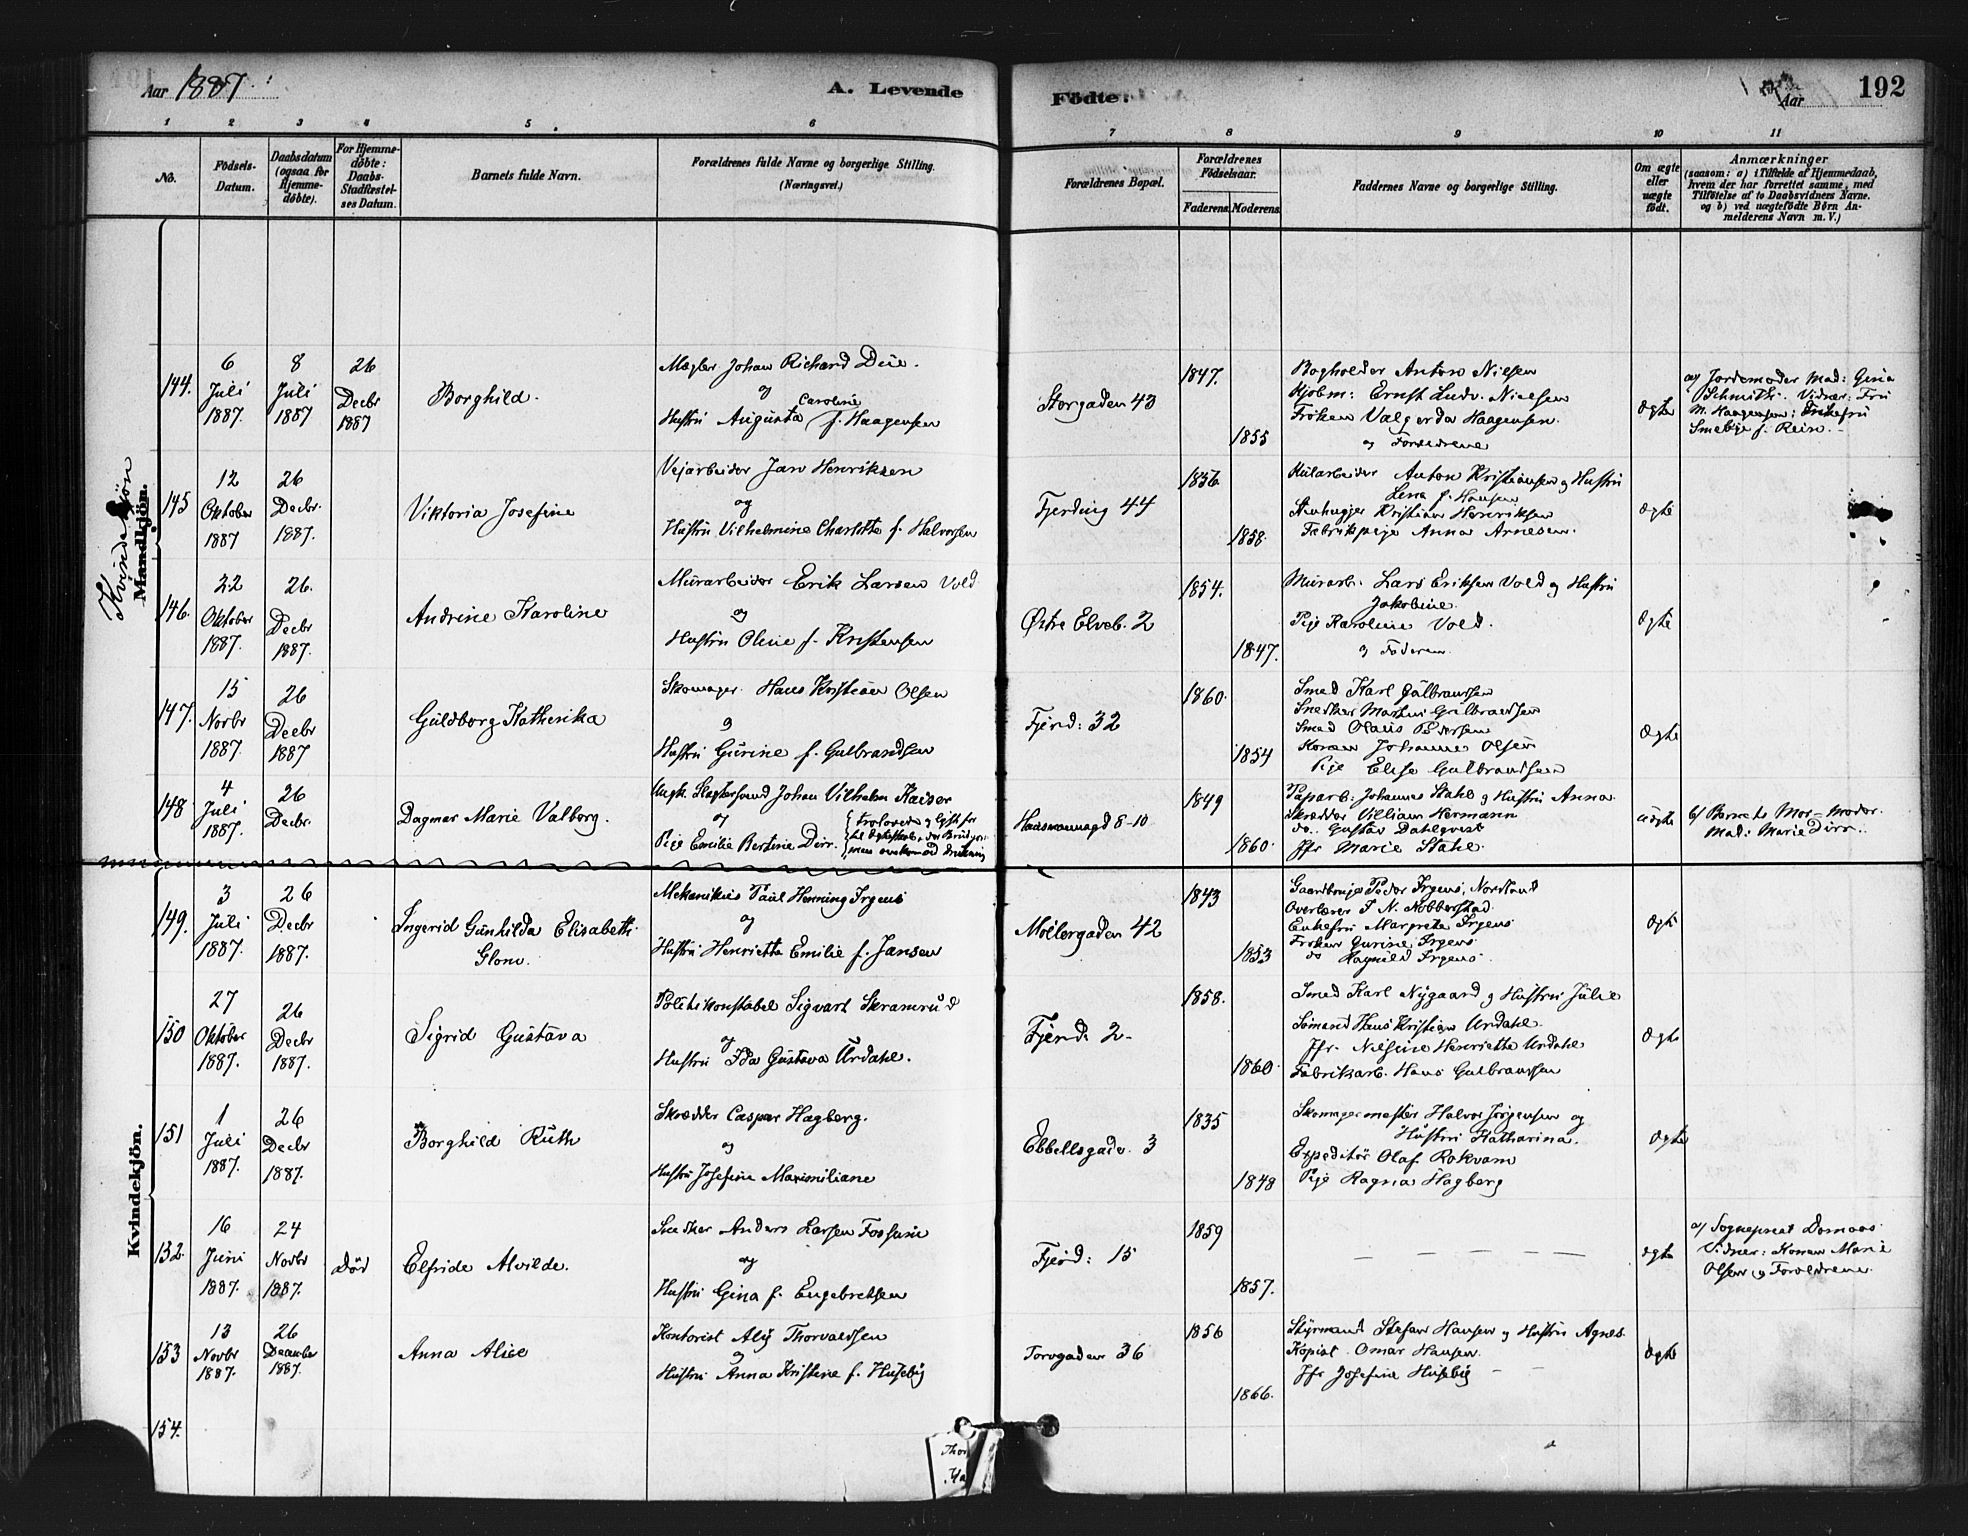 Aar 1887.
A. Levende
Födte.
Aar
192
1 2 3 4 5 6 7 8 9 10 11
No.
Födsels-Datum.
Daabsdatum (ogsaa for Hjemmedöbte).
For Hjemmedöbte: Daabs-Stadfæstelses Datum.
Barnets fulde Navn.
Forældrenes fulde Navne og borgerlige Stilling.
(Næringsvei.)
Forældrenes Bopæl.
Forældrenes Födselsaar.
Faderens. Moderens.
Faddernes Navne og borgerlige Stilling.
Om ægte eller uægte födt.
Anmærkninger
(saasom: a) i Tilfælde af Hjemmedaab,
hvem der har forrettet samme, med
Tilföielse af to Daabsvidners Navne.
og b) ved uægtefödte Börn Anmelderens Navn m. V.)
Kvindekjön
Mandkjön.
144.
6 Juli 1887.
8 Juli 1887
26 Decbr 1887
Borghild.
Mægler Johan Richard Due.
og
Hustru Augusta Caroline f. Haagensen
Storgaden 43
1847.
1855
Bogholder Anton Nielsen
Kjøbm: Ernst Ludv. Nielsen
Frøken Valgerda Haagensen.
og Forældrene
ægte
a/ Jordemoder Mad: Gina
Schmith. Vidner: Fru
M. Haagensen: Enkefru
Smebye f. Rein.
145
12 Oktober 1887
26 Decbr. 1887.
Viktoria Josefine
Vejarbeider Jan Henriksen
og
Hustru Vilhelmine Charlotte f. Halvorsen
Fjerding 44
1856
1858.
Anton Kristiansen og Hustru
Lena f. Hansen
Stenhugger Kristian Henriksen
Fabrikpige Anna Arnesen.
ægte
146.
22 Oktober 1887.
26. Decbr 1887.
Andrine Karoline
Murarbeider Erik Larsen Vold
og
Hustru Oline f. Kristensen
Østre Elveb. 2
1854.
1847.
Murarb. Lars Eriksen Vold og Hustru
Jakobine.
Pige Karoline Vold.
og Faderen
ægte
147.
15 Novbr 1887.
26 Decbr 1887
Guldborg Katherika
Skomager. Hans Kristian Olsen
og
Hustru Gurine f. Gulbrandsen
Fjerd: 32
1860.
1854
Smed Karl Gulbrandsen
Snedker Martin Gulbrandsen
Smed Olaus Pedersen
Konen Johanne Olsen
Pige Elise Gulbrandsen
ægte
148
4 Juli 1887.
26 Decbr.
Dagmar Marie Valborg.
Ungk. Slagtersvend Johan Vilhelm Kaiser
og
Pige Emilie Bertine Dirr.
Hausmannsgd 8-10
1849
1860.
Paparb: Johannes Stahl og Hustru Anna
Skrædder Villiam Hermann
do.. Gustav Dahlqvist
Jfr Marie Stahl.
uægte
b/ Barnets Mor-moder.
Mad: Marie Dirr.
Kvindekjön.
149.
3 Juli 1887.
26 Decbr 1887.
Ingerid Gunhilda Elisabeth
Glom.
Mekanikus Paul Henning Irgens
og
Hustru Henriette Emilie f. Jansen
Møllergaden 42
1843
1853
Gaardbruger Peder Irgens, Nordland
Overlærer P. N. Nobberstad
Enkefru Margrete Irgens
Frøken Gurine Irgens
do Hagnild Irgens.
ægte
150
27 Oktober 1887.
26 Decbr 1887.
Sigrid Gustava
Politikonstabel Sigvart Skramrud
og
Hustru Ida Gustava Urdahl.
Fjerd: 2
1858.
1860.
Smed Karl Nygaard og Hustru Julie
Sømand Hans Kristian Urdahl.
Jfr. Nilsine Henriette Urdahl
Fabrikarb. Hans Gulbrandsen
ægte
151
1 Juli 1887.
26 Decbr 1887.
Borghild Ruth
Skrædder Caspar Hagberg.
og
Hustru Josefine Maximiliane
Ebbellsgade. 3
1835
1848
Skomagermester Halvor Jørgensen og
Hustru Katharina.
Expeditør Olaf Rokvam
Pige Ragna Hagberg
ægte
152.
16 Juni 1887.
24 Novbr 1887.
død
Elfride Alvilde.
Snedker Anders Larsen Fossum
og
Hustru Gina f. Engebretsen
Fjerd: 15
1859
1857.
— — — — —
ægte
a/ Sogneprest Domaas
Vidner: Konen Marie
Olsen og Forældrene
153
13 Novbr 1887.
26 December 1887.
Anna Alice
Kontorist Aly Thorvaldsen
og
Hustru Anna Kristine f. Huseby
Torvgaden 36
1856
1866.
Styrmand Stefan Hansen og Hustru Agnes
Kopist Omar Hansen.
Jfr Josefine Huseby
ægte
154.
Thor
Ha